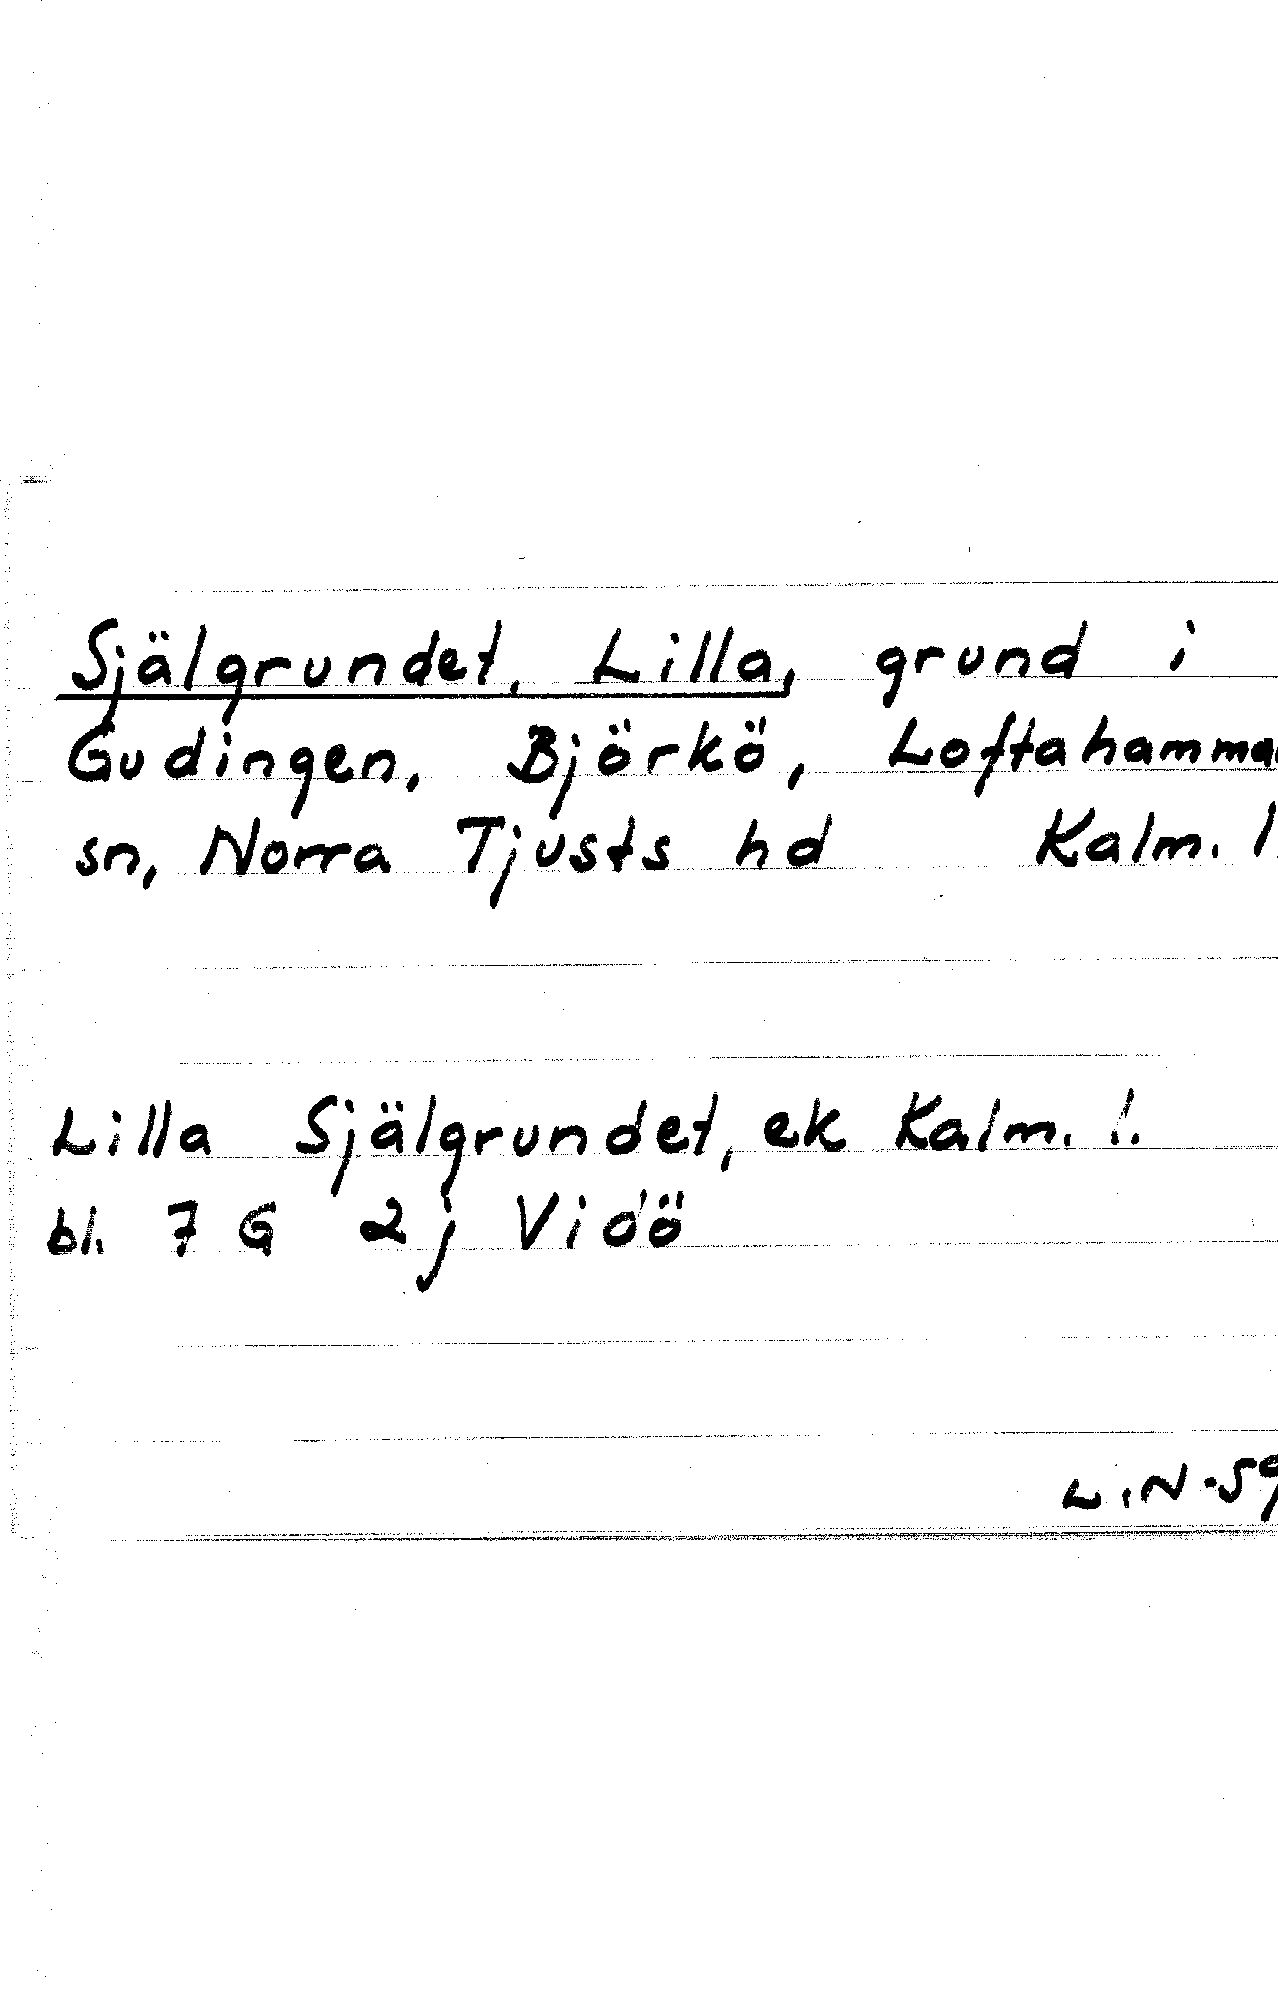 Själgrundet, Lilla, grund i
Gudingen, Björkö, Loftahammar
sn, Norra Tjusts hd Kalm. l.
Lilla Själgrundet, ek Kalm. l.
bl. 7 G 2j Vidö
L.N -59